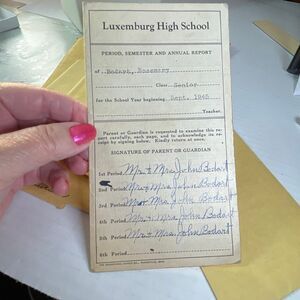 Luxemburg High School
PERIOD, SEMESTER AND ANNUAL REPORT
of Bodart, Rosemary
Class Senior
for the School Year beginning Sept. 1945
Teacher.
Parent or Guardian is requested to examine this report carefully, each page, and to acknowledge its receipt by signing below. Kindly return at once.
SIGNATURE OF PARENT OR GUARDIAN
1st Period Mr. & Mrs. John Bodart
2nd Period Mr. & Mrs. John Bodart
3rd Period Mr. & Mrs. John Bodart
4th Period Mr. & Mrs. John Bodart
5th Period Mr. & Mrs. John Bodart
6th Period